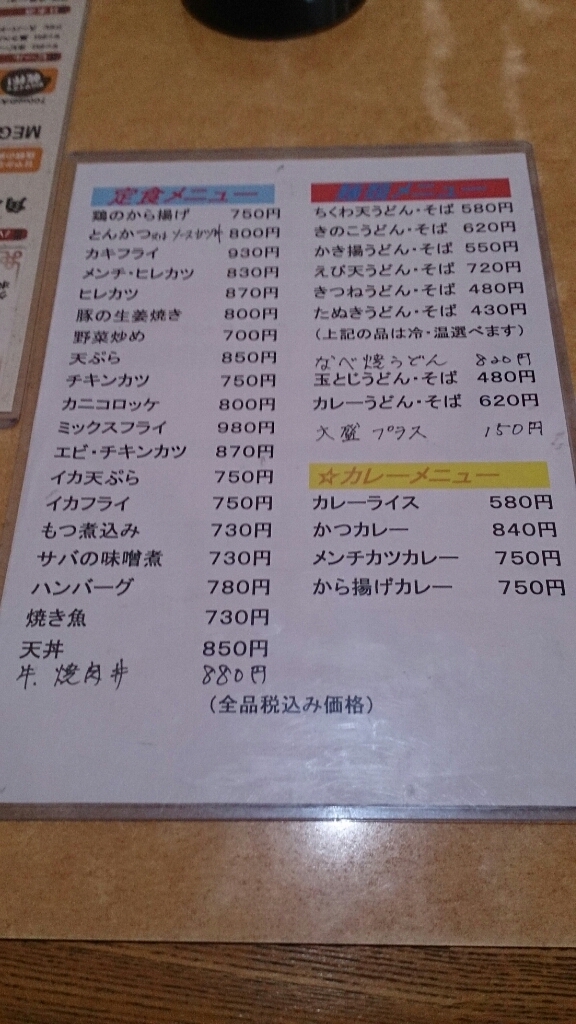 定食メニュー
鶏のから揚げ 750円
とんかつ又は ソースカツ丼 800円
カキフライ 930円
メンチ・ヒレカツ 830円
ヒレカツ 870円
豚の生姜焼き 800円
野菜炒め 700円
天ぷら 850円
チキンカツ 750円
カニコロッケ 800円
ミックスフライ 980円
エビ・チキンカツ 870円
イカ天ぷら 750円
イカフライ 750円
もつ煮込み 730円
サバの味噌煮 730円
ハンバーグ 780円
焼き魚 730円
天丼 850円
牛.焼肉丼 880円
(全品税込み価格)
麺類メニュー
ちくわ天うどん・そば 580円
きのこうどん・そば 620円
かき揚うどん・そば 550円
えび天うどん・そば 720円
きつねうどん・そば 480円
たぬきうどん・そば 430円
(上記の品は冷・温選べます)
なべ焼うどん 820円
玉とじうどん・そば 480円
カレーうどん・そば 620円
大盛 プラス 150円
☆カレーメニュー
カレーライス 580円
かつカレー 840円
メンチカツカレー 750円
から揚げカレー 750円
MEG